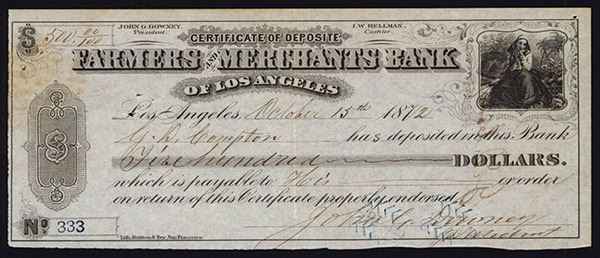 JOHN G. DOWNEY, President. I.W. HELLMAN, Cashier.
$ 500 00/100 CERTIFICATE OF DEPOSITE
FARMERS AND MERCHANTS BANK
OF LOS ANGELES
Los Angeles, October 15th 1872
G. D. Compton has deposited in this Bank
Five hundred DOLLARS.
which is payable to His or order
on return of this Certificate properly endorsed
John G. Downey
President
No. 333
Lith. Britton & Rey, San Francisco.